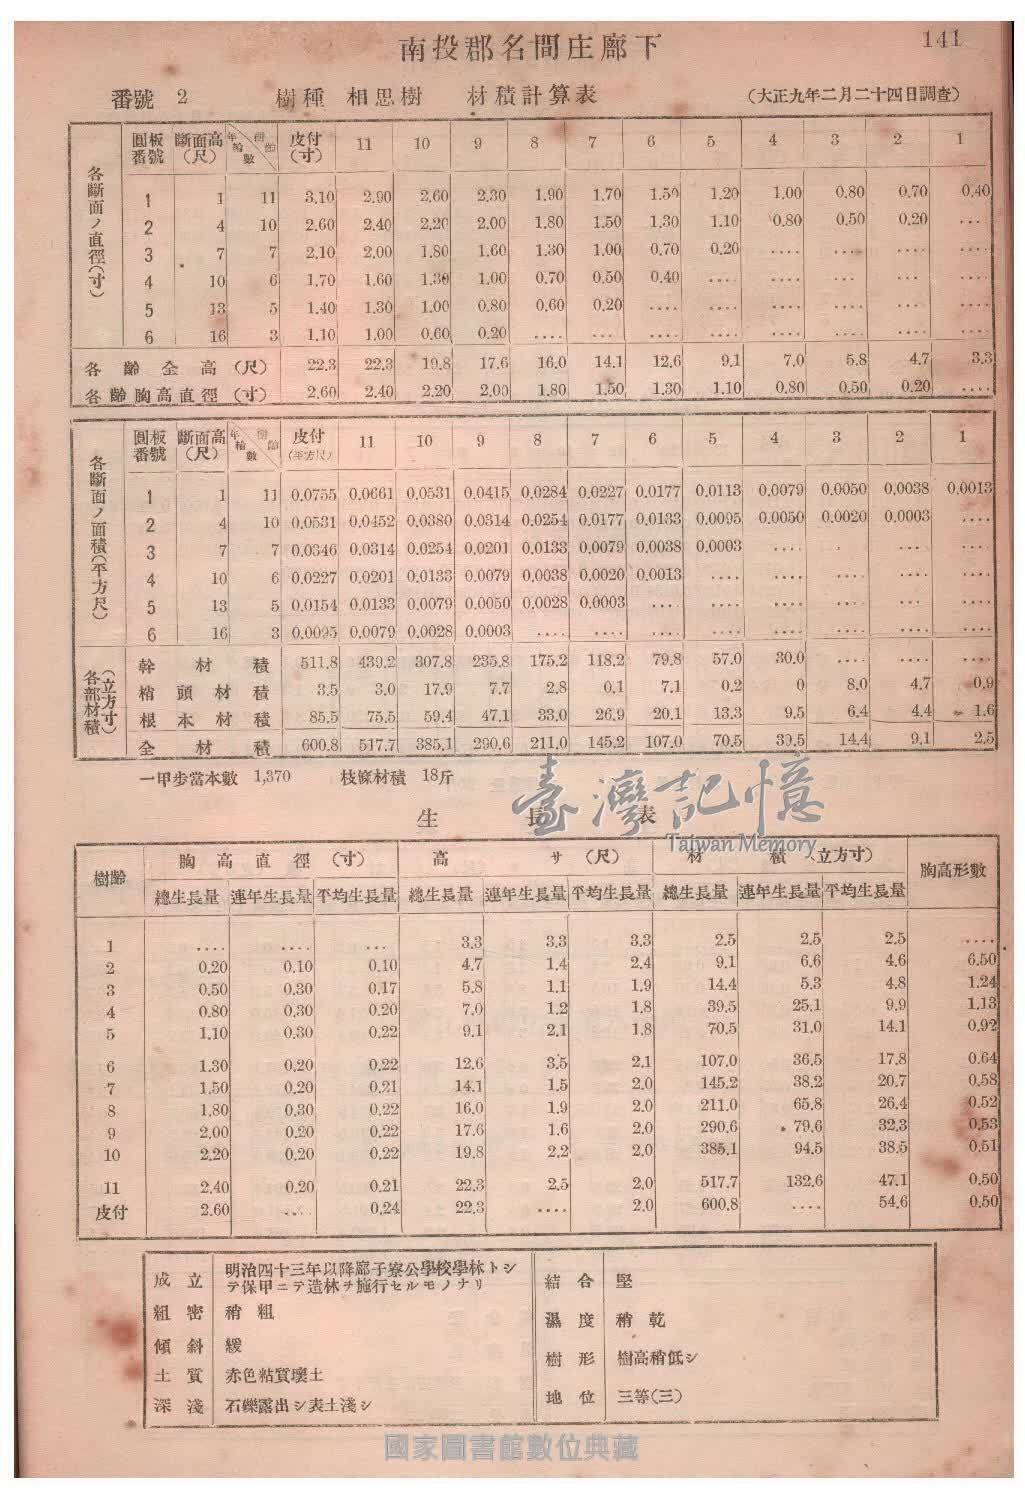 141
南投郡名間庄廍下
番號 2 樹種 相思樹 材積計算表 (大正九年二月二十四日調査)
各斷面ノ直徑(寸)
圓板番號 斷面高(尺) 年輪數 樹齡 皮付(寸) 11 10 9 8 7 6 5 4 3 2 1
1 1 11 3.10 2.90 2.60 2.30 1.90 1.70 1.50 1.20 1.00 0.80 0.70 0.40
2 4 10 2.60 2.40 2.20 2.00 1.80 1.50 1.30 1.10 0.80 0.50 0.20 ....
3 7 7 2.10 2.00 1.80 1.60 1.30 1.00 0.70 0.20 .... .... .... ....
4 10 6 1.70 1.60 1.30 1.00 0.70 0.50 0.40 .... .... .... .... ....
5 13 5 1.40 1.30 1.00 0.80 0.60 0.20 .... .... .... .... .... ....
6 16 3 1.10 1.00 0.60 0.20 .... .... .... .... .... .... .... ....
各齡全高(尺) 22.3 22.3 19.8 17.6 16.0 14.1 12.6 9.1 7.0 5.8 4.7 3.3
各齡胸高直徑(寸) 2.60 2.40 2.20 2.00 1.80 1.50 1.30 1.10 0.80 0.50 0.20 ....
各斷面ノ面積(平方尺)
圓板番號 斷面高(尺) 年輪數 樹齡 皮付(平方尺) 11 10 9 8 7 6 5 4 3 2 1
1 1 11 0.0755 0.0661 0.0531 0.0415 0.0284 0.0227 0.0177 0.0113 0.0079 0.0050 0.0038 0.0013
2 4 10 0.0531 0.0452 0.0380 0.0314 0.0254 0.0177 0.0133 0.0095 0.0050 0.0020 0.0003 ....
3 7 7 0.0346 0.0314 0.0254 0.0201 0.0133 0.0079 0.0038 0.0003 .... .... .... ....
4 10 6 0.0227 0.0201 0.0133 0.0079 0.0038 0.0020 0.0013 .... .... .... .... ....
5 13 5 0.0154 0.0133 0.0079 0.0050 0.0028 0.0003 .... .... .... .... .... ....
6 16 3 0.0095 0.0079 0.0028 0.0003 .... .... .... .... .... .... .... ....
各部材積(立方寸)
幹材積 511.8 439.2 307.8 235.8 175.2 118.2 79.8 57.0 30.0 .... .... ....
梢頭材積 3.5 3.0 17.9 7.7 2.8 0.1 7.1 0.2 0 8.0 4.7 0.9
根本材積 85.5 75.5 59.4 47.1 33.0 26.9 20.1 13.3 9.5 6.4 4.4 1.6
全材積 600.8 517.7 385.1 290.6 211.0 145.2 107.0 70.5 39.5 14.4 9.1 2.5
一甲步當本數 1,370 枝條材積 18斤
臺灣記憶
Taiwan Memory
生長表
樹齡 胸高直徑(寸) 高サ(尺) 材積(立方寸) 胸高形數
總生長量 連年生長量 平均生長量 總生長量 連年生長量 平均生長量 總生長量 連年生長量 平均生長量
1 .... .... ... 3.3 3.3 3.3 2.5 2.5 2.5 ....
2 0.20 0.10 0.10 4.7 1.4 2.4 9.1 6.6 4.6 6.50
3 0.50 0.30 0.17 5.8 1.1 1.9 14.4 5.3 4.8 1.24
4 0.80 0.30 0.20 7.0 1.2 1.8 39.5 25.1 9.9 1.13
5 1.10 0.30 0.22 9.1 2.1 1.8 70.5 31.0 14.1 0.92
6 1.30 0.20 0.22 12.6 3.5 2.1 107.0 36.5 17.8 0.64
7 1.50 0.20 0.21 14.1 1.5 2.0 145.2 38.2 20.7 0.58
8 1.80 0.30 0.22 16.0 1.9 2.0 211.0 65.8 26.4 0.52
9 2.00 0.20 0.22 17.6 1.6 2.0 290.6 79.6 32.3 0.53
10 2.20 0.20 0.22 19.8 2.2 2.0 385.1 94.5 38.5 0.51
11 2.40 0.20 0.21 22.3 2.5 2.0 517.7 132.6 47.1 0.50
皮付 2.60 .... 0.24 22.3 .... 2.0 600.8 .... 54.6 0.50
成立 明治四十三年以降廍子寮公學校學林トシ
テ保甲ニテ造林ヲ施行セルモノナリ
粗密 稍粗
傾斜 緩
土質 赤色粘質壤土
深淺 石礫露出シ表土淺シ
結合 堅
濕度 稍乾
樹形 樹高稍低シ
地位 三等(三)
國家圖書館數位典藏